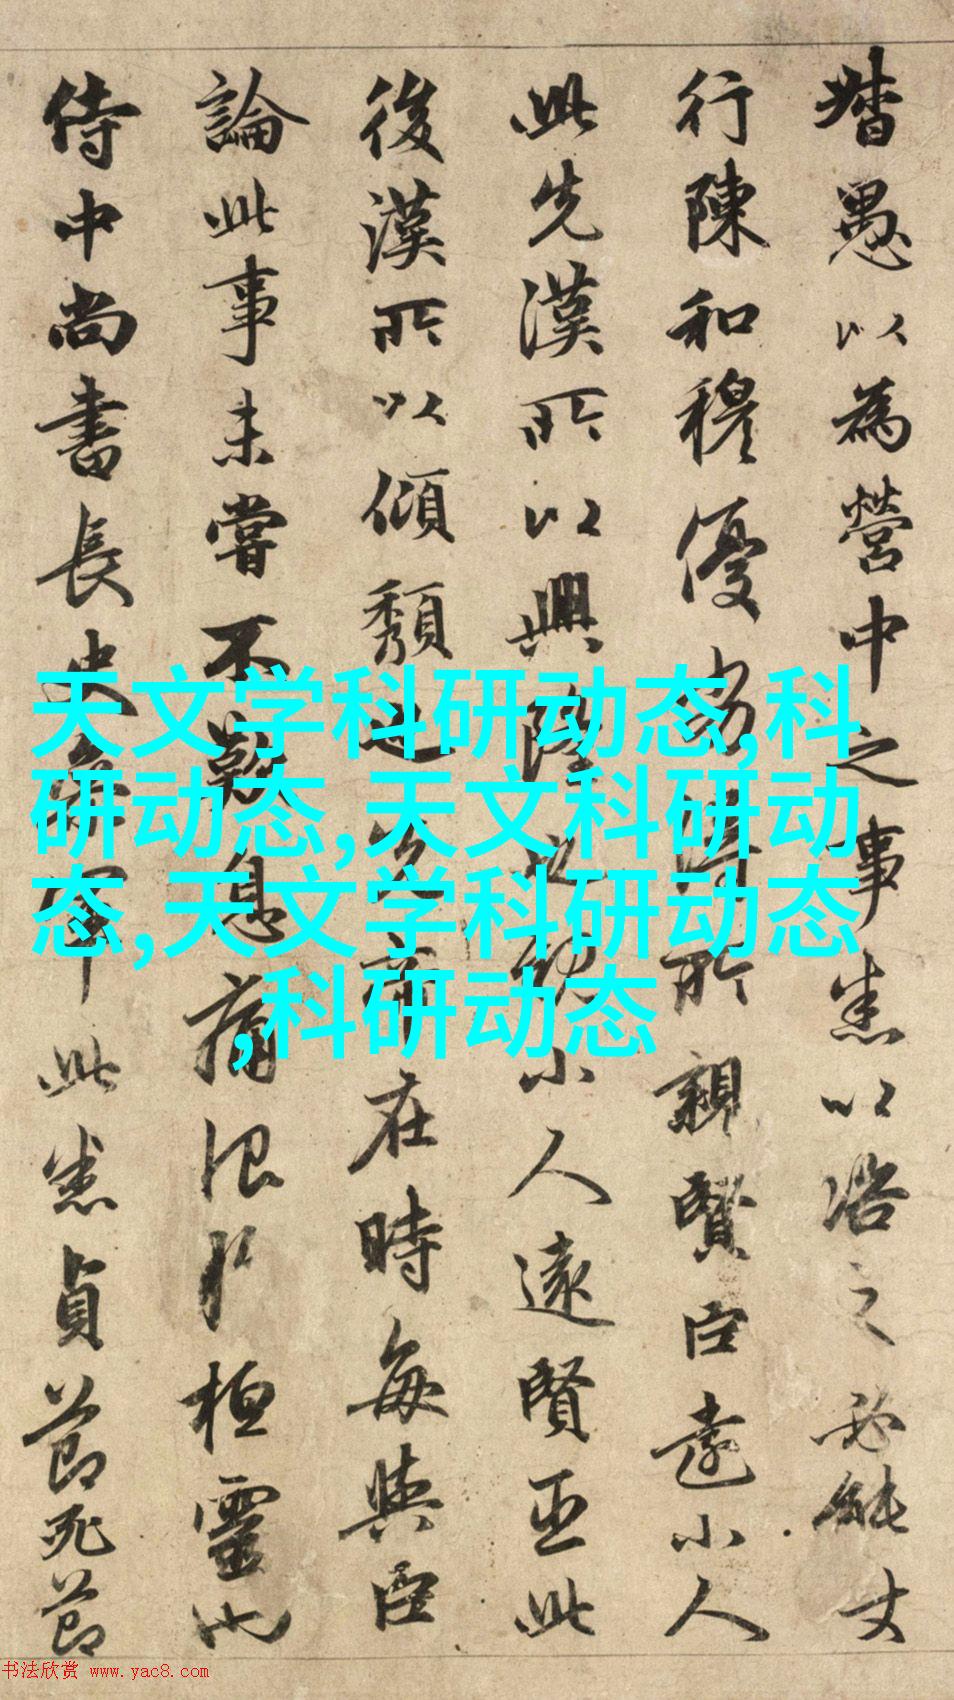 督愚以為營中之事悉以治之必能
行陳和穆優劣得所親賢臣遠小人
此先漢所以興隆也親小人遠賢臣此
後漢所以傾頹也先帝在時每與臣
論此事未嘗不歎息痛恨於桓靈也
侍中尚書長史參軍此悉貞節死節
天文学科研动态,科
研动态,天文科研动
态,天文学科研动态
,科研动态
书法欣赏 www.yac8.com